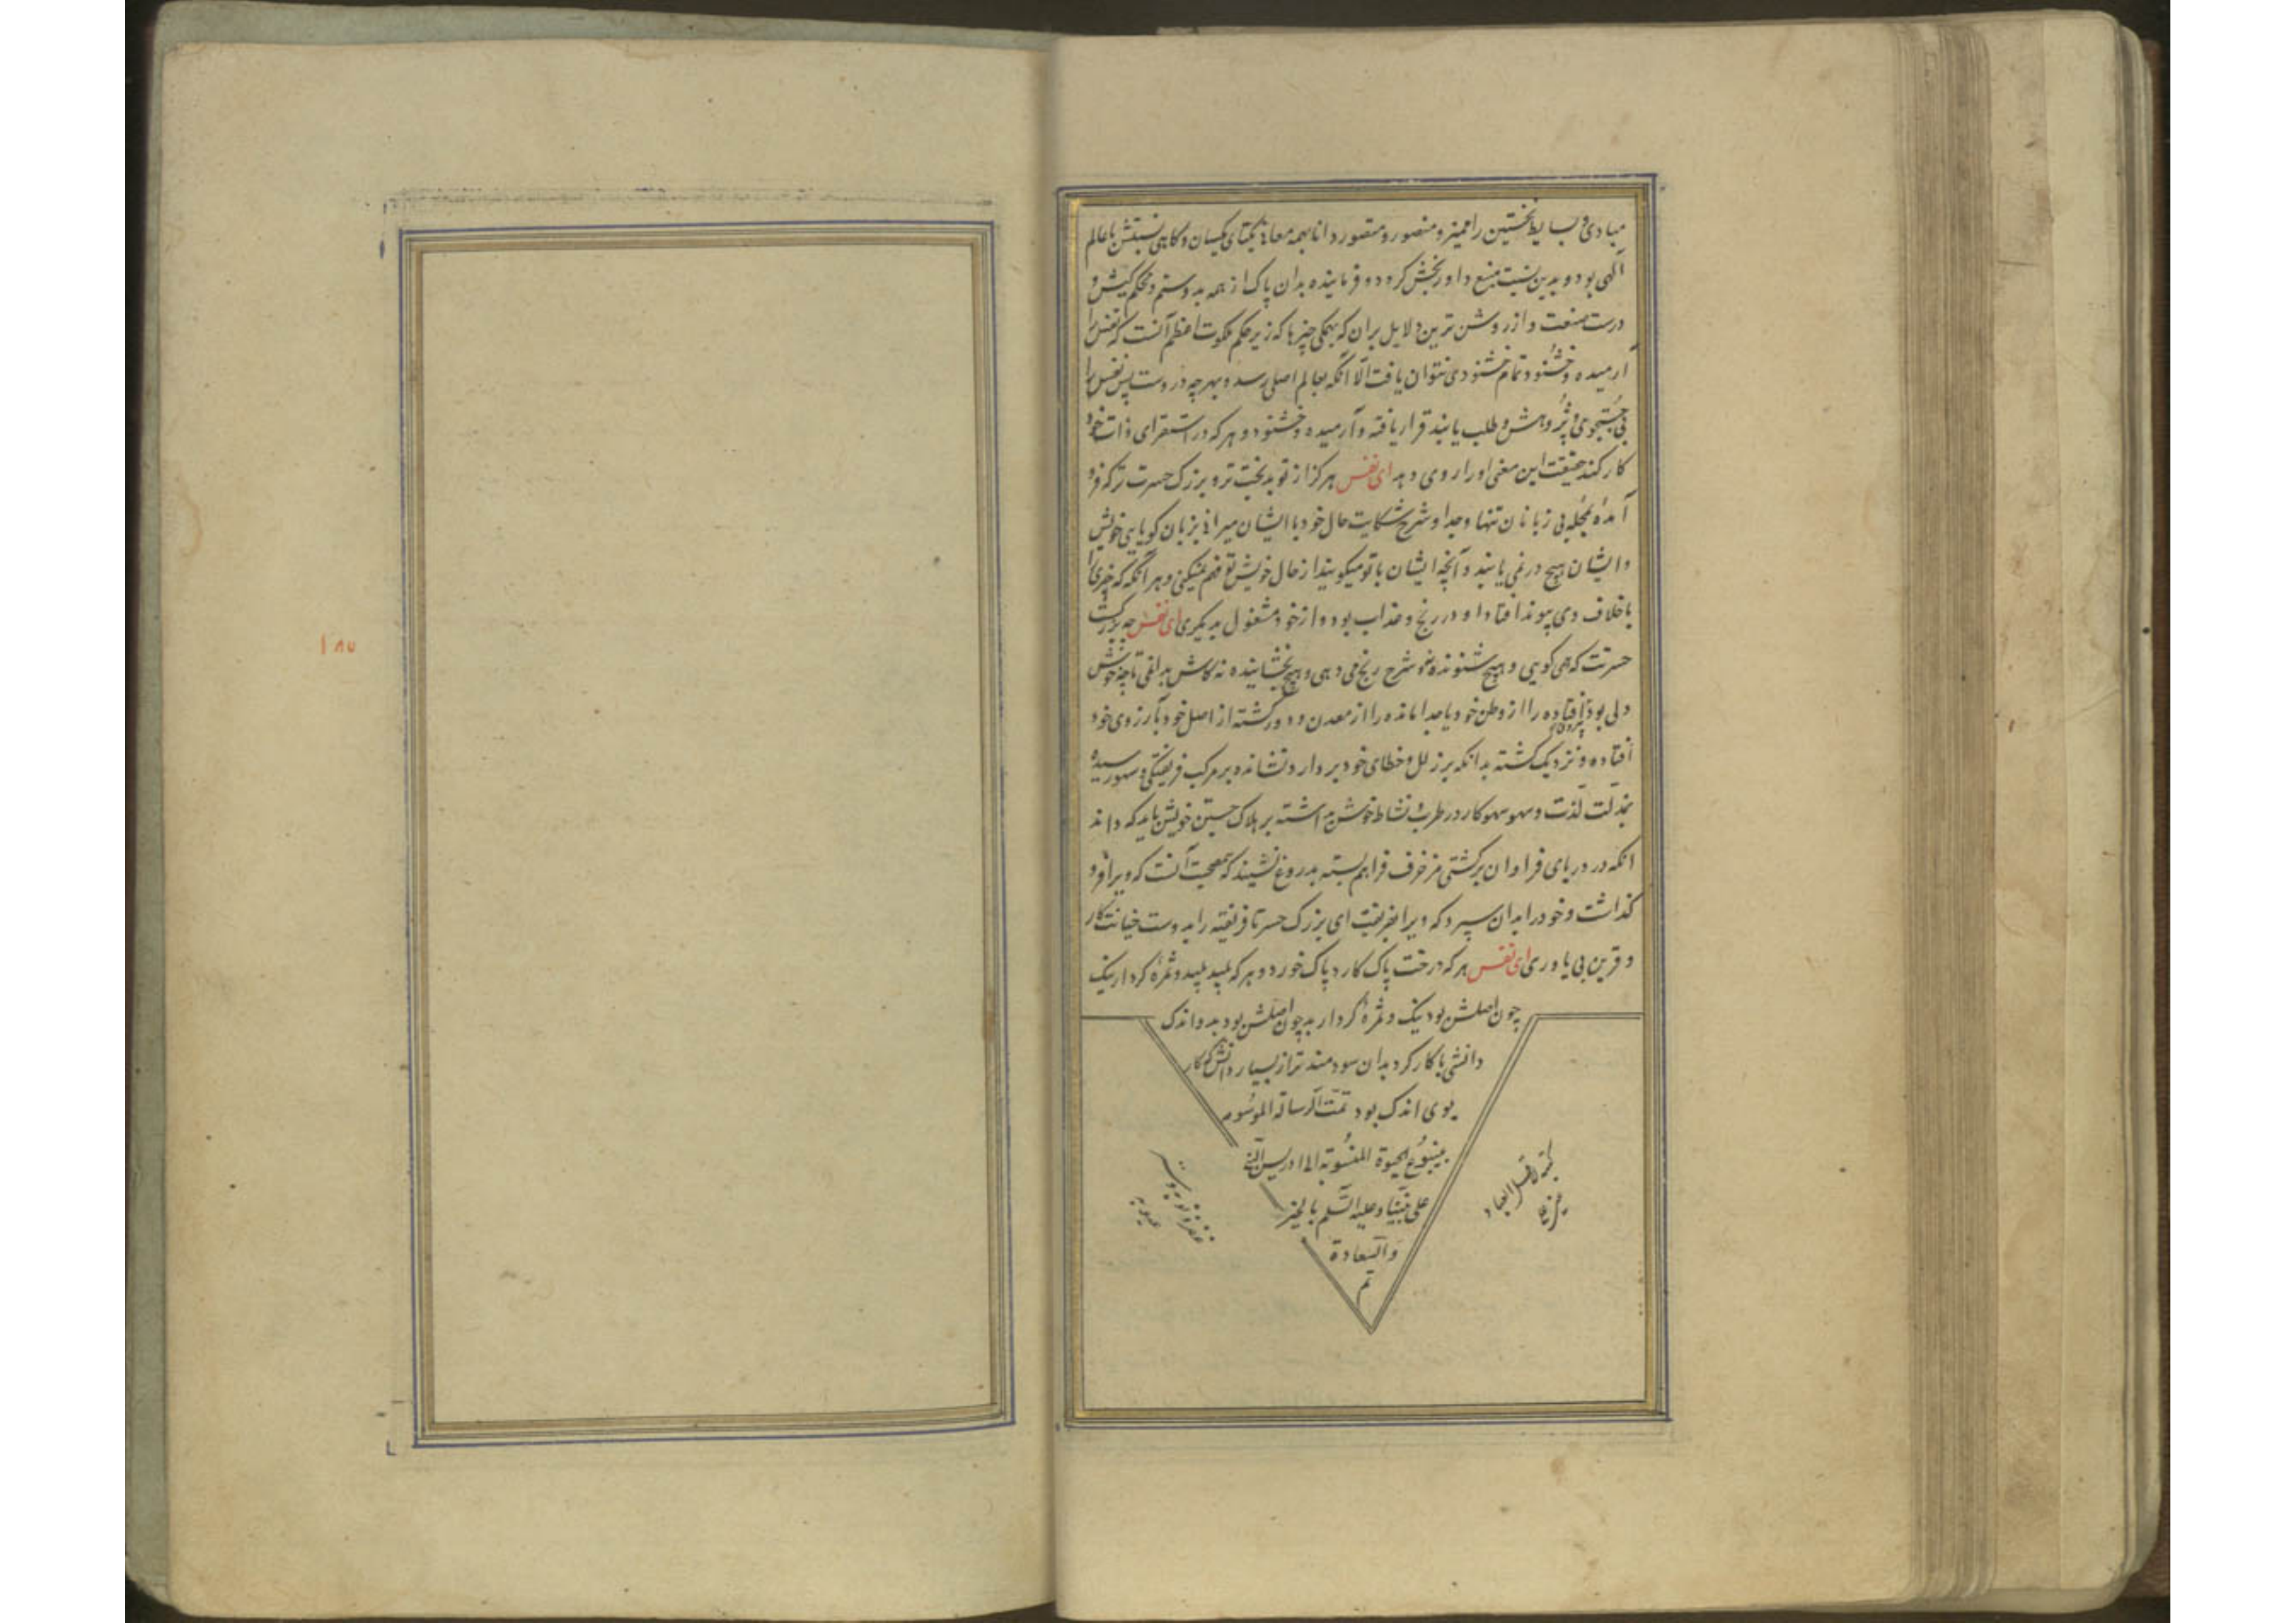 مبادی و بسایط نخستین را ممیز و منصور و متصور دانا بهمه معانی یکتای یکسان و کاهی نسبتش با عالم
آلهی بود و بدین نسبت منبع داور بخش کردد و فرماینده بدان پاک از همه بد و ستم و محکم کیش و
درست صنعت و از روشن ترین دلایل بران که بهمکی چیزها که زیر حکم ملکوت اعظم آنست که نفس را
آرمیده و خشنود تمام خشنودی نتوان یافت الا آنکه بعالم اصلی رسد و بهرچه دروست پس نفس را
بی جستجوی و پژوهش و طلب یابند قرار یافته و آرمیده و خشنود و هر که در استقرای ذات خود
کار کند حقیقت این معنی او را روی دهد ای نفس هرکز از تو بدبخت تر و بزرک حسرت تر که فرو
آمدهٔ بمحله بی زبانان تنها و جدا و شرح شکایت حال خود با ایشان میرانی بزبان کویایی خویش
و ایشان هیچ درنمی یابند و آنچه ایشان با تو میکویند از حال خویش تو فهم نمیکنی و هر آنکه که چیزی را
با خلاف وی پیوند افتاد او در رنج و عذاب بود و از خود مشغول بدیکری ای نفس چه بزرکست
حسرتت که می کویی و هیچ شنونده نه و شرح رنج می دهی و هیچ بخشاینده نه کاش بدانمی تا چه خوش
دلی بود افتاده را از وطن خود یا جدا مانده را از معدن و دور کشته از اصل خود بآرزوی خود
افتاده و نزدیک کشته بدانکه بر زلل و خطای خود بر دارد نشانده بر مرکب فریفتکی و سهو رسیده
بمذلت لذت و سهو سهوکار در طرب و نشاط خوش داشته بر هلاک جستن خویش باید که داند
انکه در دریای فراوان بر کشتی مزخرف فراهم بسته بدروغ نشیند که مصیبت آنست که ویرا فرو
کذاشت و خود را بدان سپرد که ویرا بفریفت ای بزرک حسرتا فریفته را بدوست خیانت کار
و قرین بی یاوری ای نفس هر که درخت پاک کارد پاک خورد و هر که پلید پلید و ثمرهٔ کردار نیک
چون اصلش بود نیک و ثمرهٔ کردار بد چون اصلش بود بد و اندک
دانشی با کار کرد بدان سودمند تر از بسیار دانش که کار
بوی اندک بود تمت الرسالة الموسومه
بینبوع الحیوة المنسوبة الی ادریس النبی
علی نبینا و علیه السلم بالخیر
والسعادة
تم
کتبه اقل العباد
غفر ذنوبه و ستر
عیوبه
۱۸۷